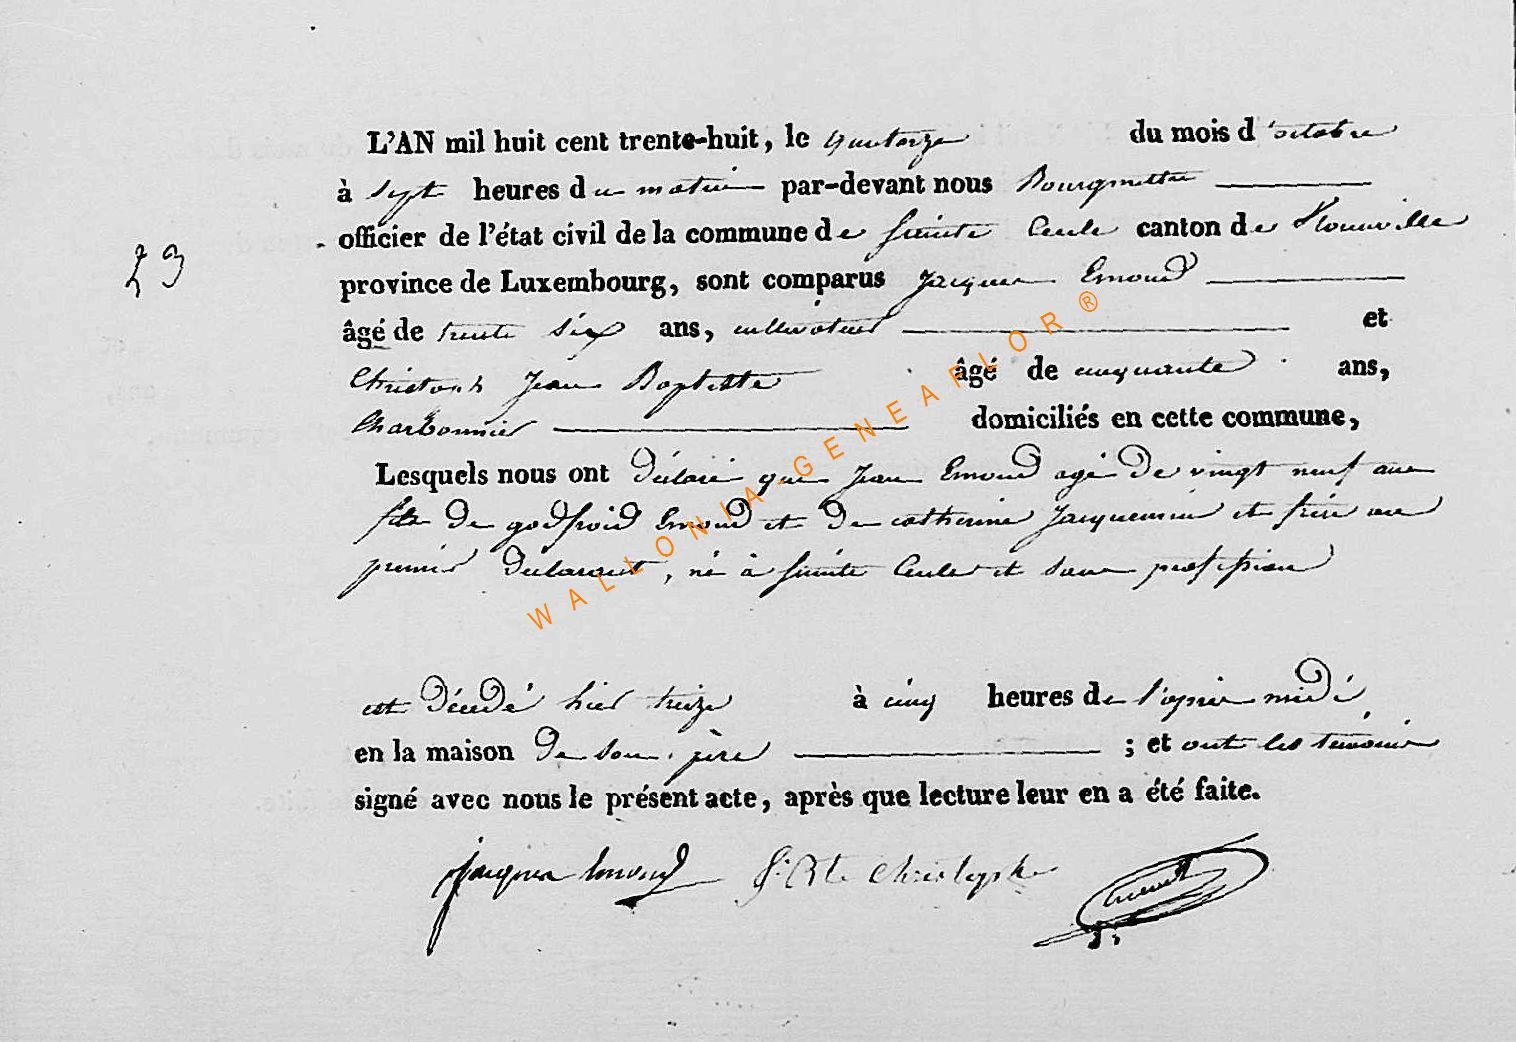 L'AN mil huit cent trente-huit, le quatorze du mois d'octobre
à sept heures du matin par-devant nous Bourgmettre
officier de l'état civil de la commune de Sainte Cecile canton de Florenville
province de Luxembourg, sont comparus Jacques Emond
23
âgé de trente six ans, cultivateur et
Christoph Jean Baptiste âgé de cinquante ans,
Charbonnier domiciliés en cette commune,
Lesquels nous ont déclaré que Jean Emond agé de vingt neuf ans
fils de godfroid Emond et de catherine Jacquemin et frère au
premier déclarant, né à Sainte Cecile et sans profession
est décédé hier treize à cinq heures de l'après midi
en la maison de son père ; et ont les témoins
signé avec nous le présent acte, après que lecture leur en a été faite.
jacques Emond J. Bte Christophe
WALLONIA-GENEAFLOR ®